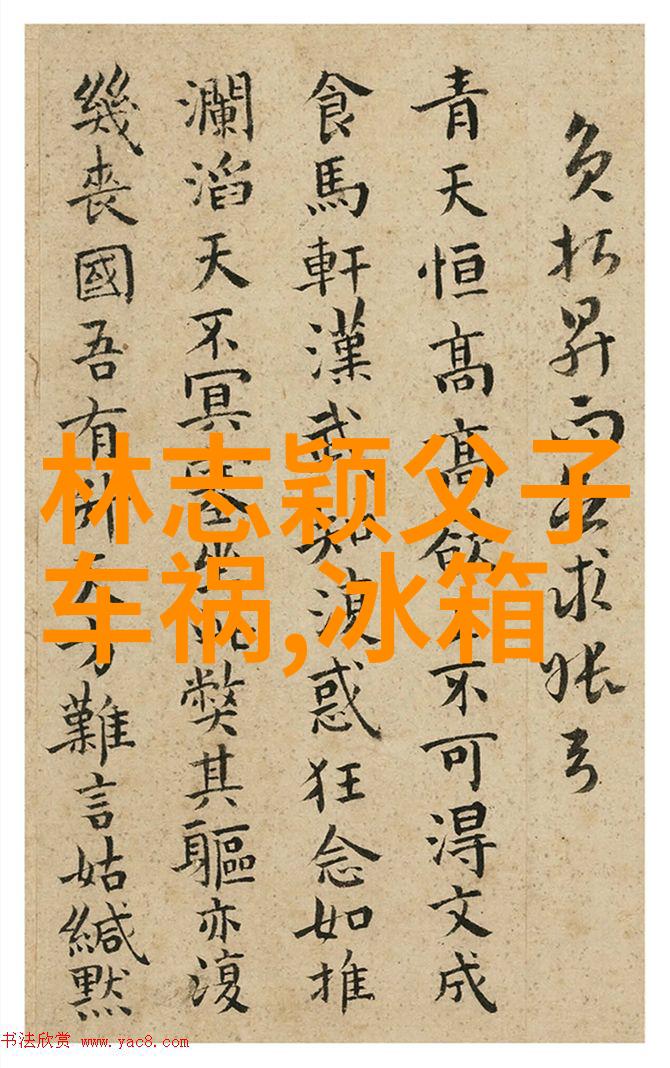 昇而求
青天恒高高欲不可得文成
食馬軒漢武知復惑狂念如推
瀾滔天不冥坐此獘其軀亦復
幾喪國吾有難言姑緘默
林志颖父子
车祸,冰箱
书法欣赏 www.yac8.com